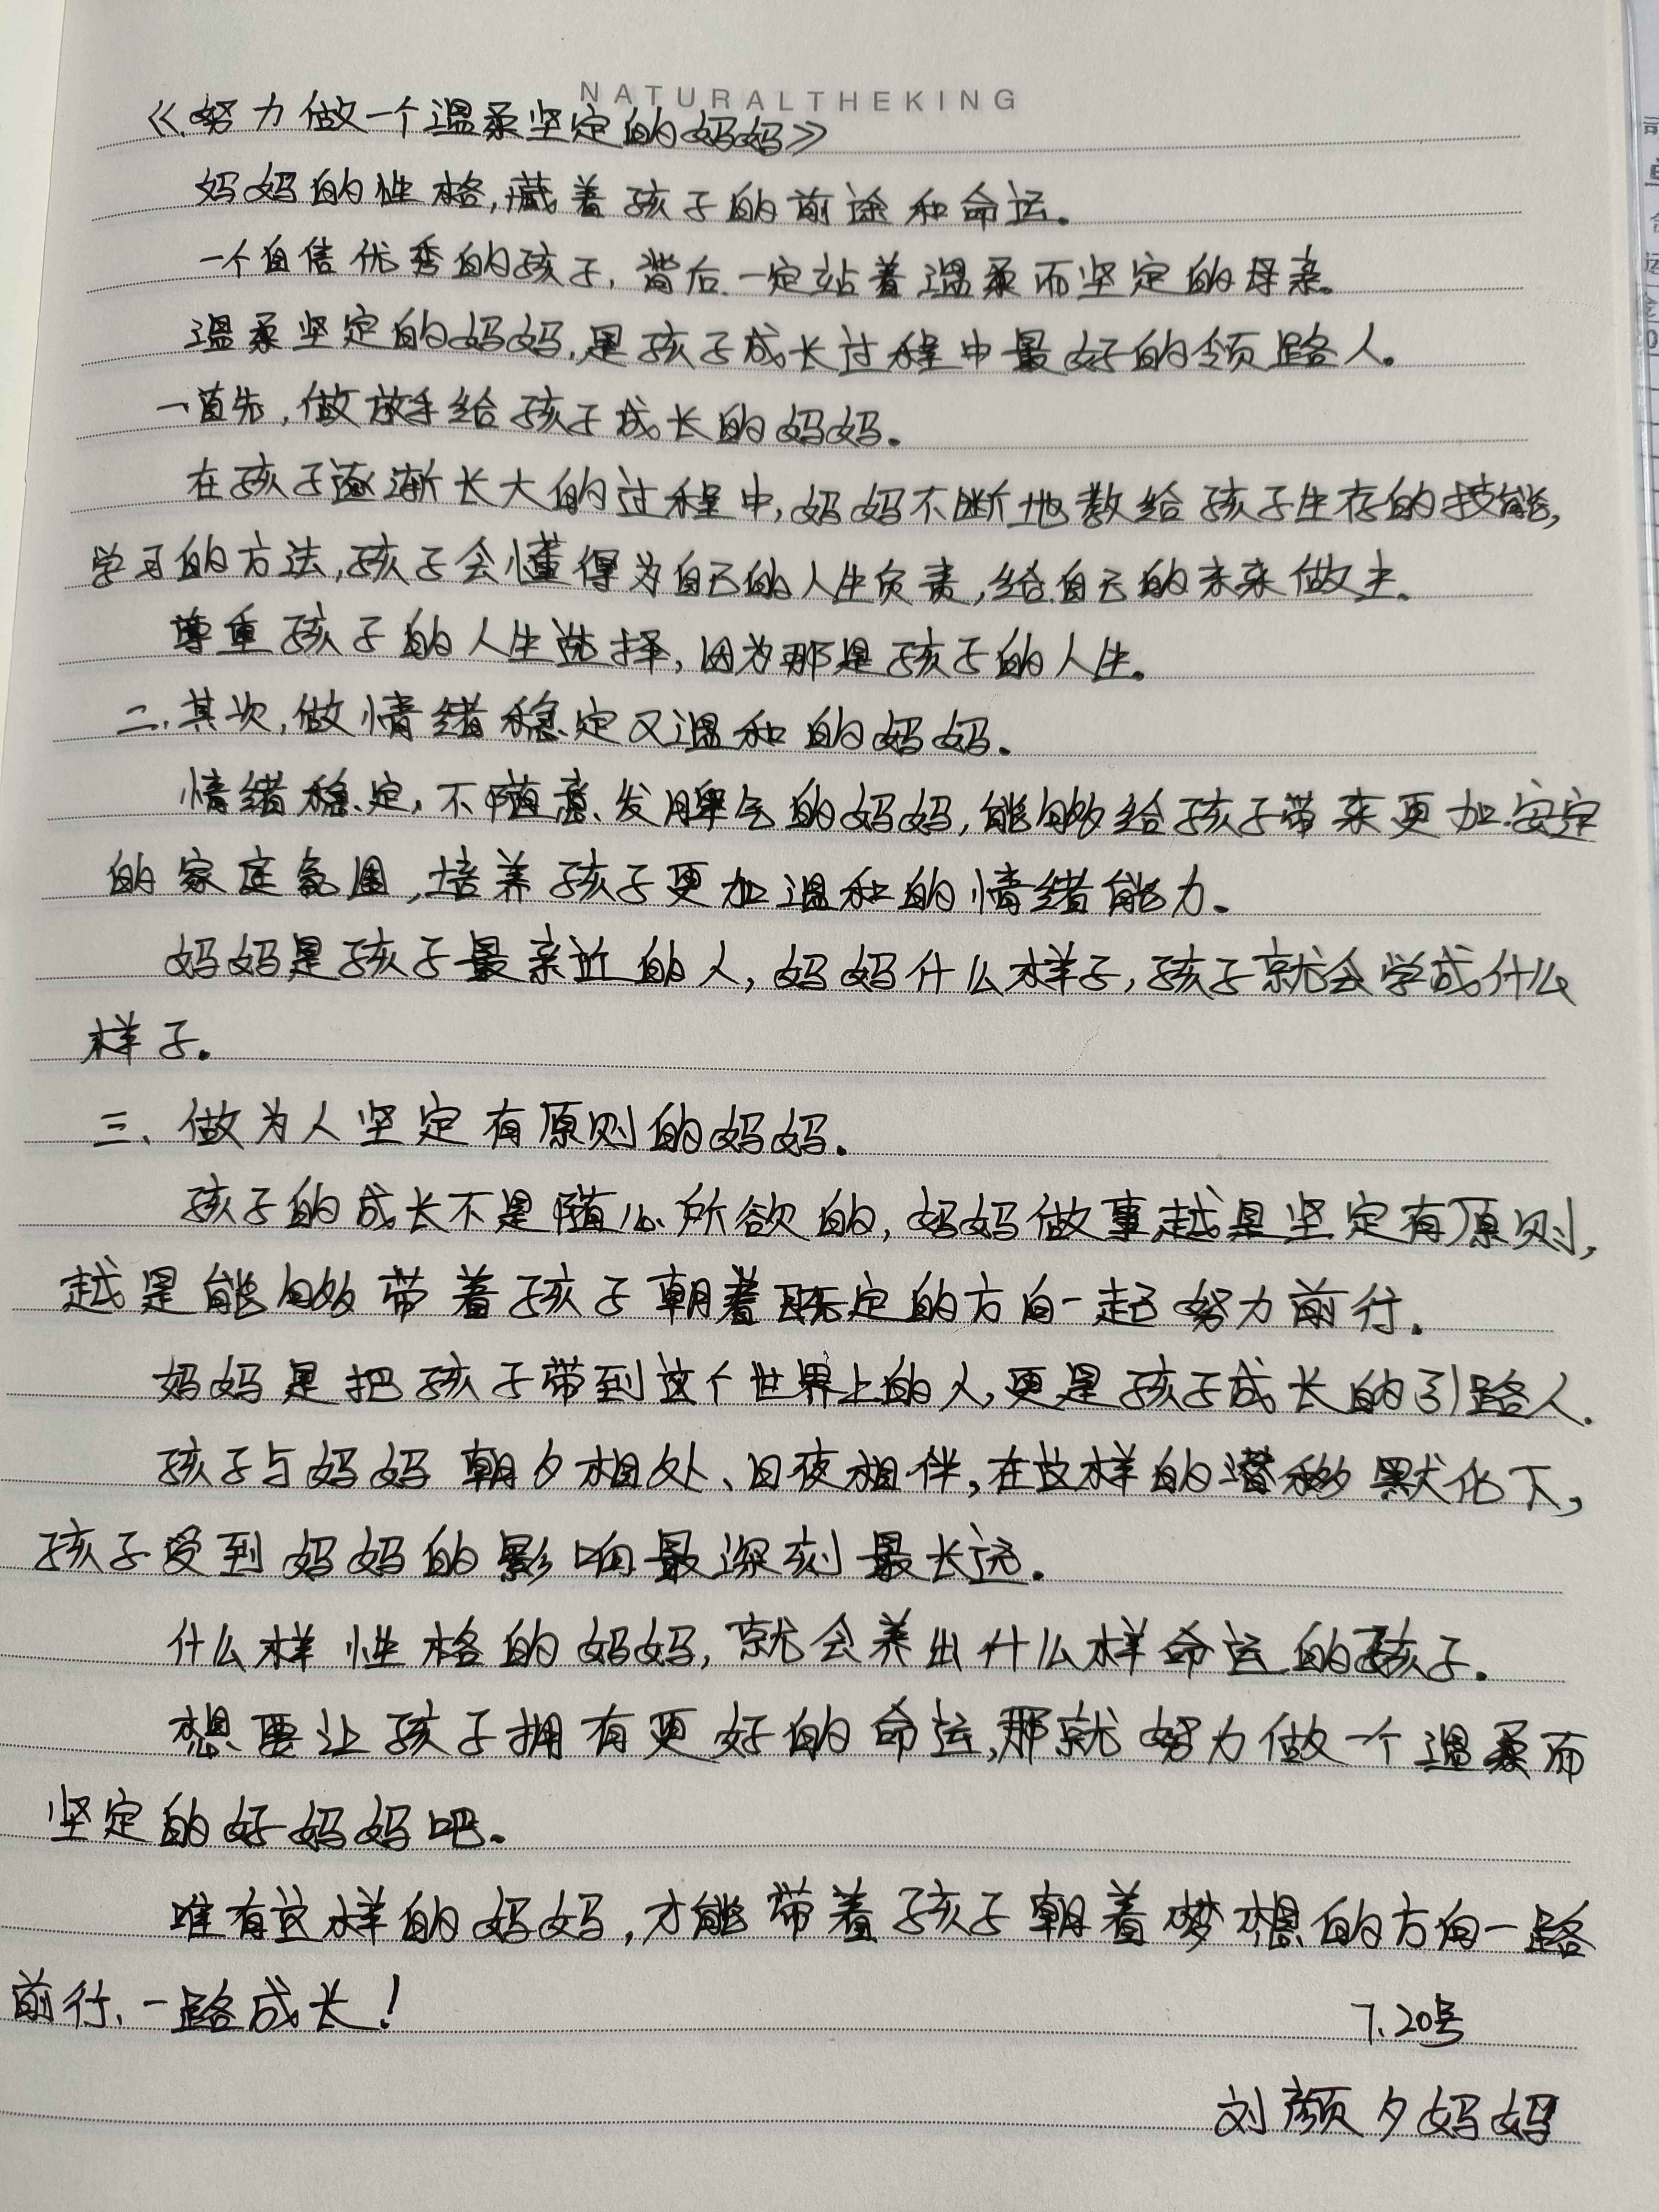 NATURALTHEKING
《努力做一个温柔坚定的妈妈》
妈妈的性格,藏着孩子的前途和命运。
一个自信优秀的孩子,背后一定站着温柔而坚定的母亲。
温柔坚定的妈妈,是孩子成长过程中最好的领路人。
一首先,做放手给孩子成长的妈妈。
在孩子逐渐长大的过程中,妈妈不断地教给孩子生存的技能,
学习的方法,孩子会懂得为自己的人生负责,给自己的未来做主。
尊重孩子的人生选择,因为那是孩子的人生。
二.其次,做情绪稳定又温和的妈妈。
情绪稳定,不随意发脾气的妈妈,能够给孩子带来更加安定
的家庭氛围,培养孩子更加温和的情绪能力。
妈妈是孩子最亲近的人,妈妈什么样子,孩子就会学成什么
样子。
三、做为人坚定有原则的妈妈.
孩子的成长不是随心所欲的,妈妈做事越是坚定有原则,
越是能够带着孩子朝着既定的方向一起努力前行。
妈妈是把孩子带到这个世界上的人,更是孩子成长的引路人.
孩子与妈妈朝夕相处、日夜相伴,在这样的潜移默化下,
孩子受到妈妈的影响最深刻最长远。
什么样性格的妈妈,就会养出什么样命运的孩子。
想要让孩子拥有更好的命运,那就努力做一个温柔而
坚定的好妈妈吧。
唯有这样的妈妈,才能带着孩子朝着梦想的方向一路
前行、一路成长!
7.20号
刘颜夕妈妈